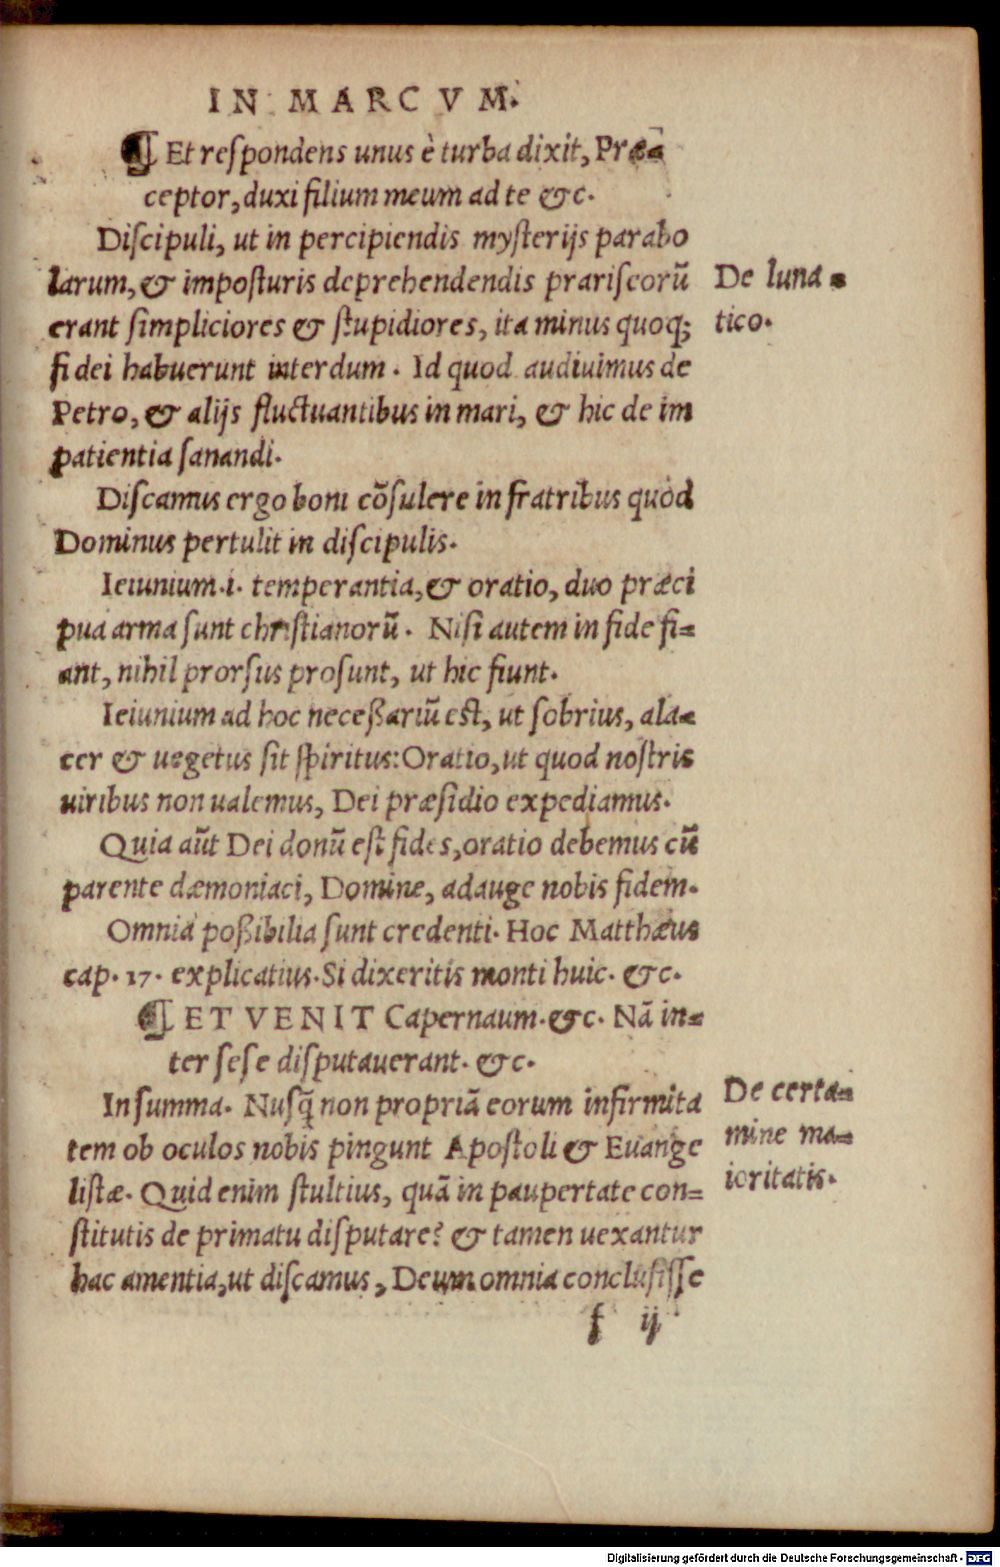 IN MARCVM.
¶ Et reſpondens unus è turba dixit, Præ-
ceptor, duxi filium meum ad te &c.
Diſcipuli, ut in percipiendis myſterijs parabo
larum, & impoſturis deprehendendis prariſeorũ
erant ſimpliciores & ſtupidiores, ita minus quoq;
fidei habuerunt interdum. Id quod audiuimus de
Petro, & alijs fluctuantibus in mari, & hic de im
patientia ſanandi.
De luna-
tico.
Diſcamus ergo boni cõſulere in fratribus quod
Dominus pertulit in diſcipulis.
Ieiunium .i. temperantia, & oratio, duo præci
pua arma ſunt chriſtianorũ. Niſi autem in fide fi-
ant, nihil prorſus proſunt, ut hic fiunt.
Ieiunium ad hoc neceßariũ est, ut ſobrius, ala-
cer & uegetus ſit ſpiritus: Oratio, ut quod noſtris
uiribus non ualemus, Dei præſidio expediamus.
Quia aũt Dei donũ eſt fides, oratio debemus cũ
parente dæmoniaci, Domine, adauge nobis fidem.
Omnia poßibilia ſunt credenti. Hoc Matthæus
cap. 17. explicatius. Si dixeritis monti huic. &c.
¶ ET VENIT Capernaum. &c. Nã in-
ter ſeſe diſputauerant. &c.
In ſumma. Nuſq̃ non propriã eorum infirmita
tem ob oculos nobis pingunt Apoſtoli & Euange
liſtæ. Quid enim ſtultius, quã in paupertate con-
ſtitutis de primatu diſputare? & tamen uexantur
hac amentia, ut diſcamus, Deum omnia concluſiſſe
De certa-
mine ma-
ioritatis.
f ij
Digitalisierung gefördert durch die Deutsche Forschungsgemeinschaft - DFG